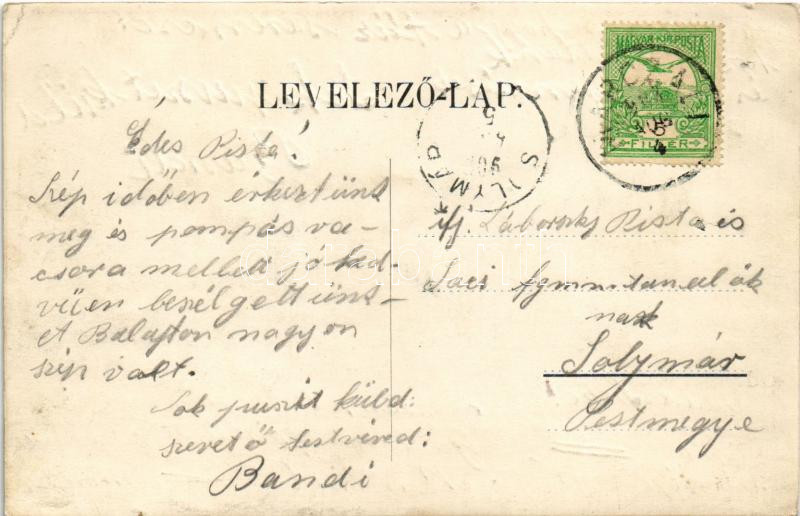 LEVELEZŐ-LAP.
MAGYAR KIR. POSTA
FILLÉR
SOLYMÁR
Édes Pista!
Szép időben érkeztünk
meg és pompás va-
csora mellett jó ked-
vűen beszélgettünk
A Balaton nagyon
szép volt.
Sok puszit küld:
szerető testvéred:
Bandi
ifj. Pista és
Laci gymn. tanulók
nak
Solymár
Pestmegye